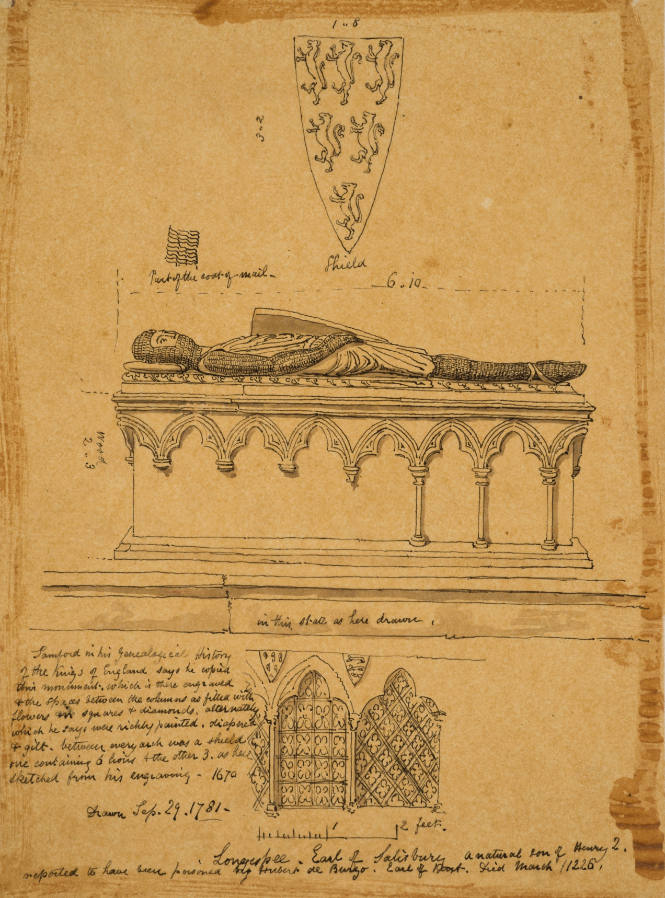 1 - 8
3 - 2
Shield
Part of the coat of mail -
6 - 10
Wood
2 - 3
in this state as here drawn .
Sanford in his Genealogical History
of the Kings of England says he copied
this monument. which is there engraved
& the spaces between the columns as filled with
flowers in squares & diamonds. alternately
which he says were richly painted. diapered
& gilt. between every arch was a shield
one containing 6 lions & the other 3. as here
sketched from his engraving - 1670
Drawn Sep. 29. 1781 -
1 2 feet.
Longespee . Earl of Salisbury a natural son of Henry 2.
reported to have been poisoned by Hubert de Burgo . Earl of Kent. Died March 1226 .